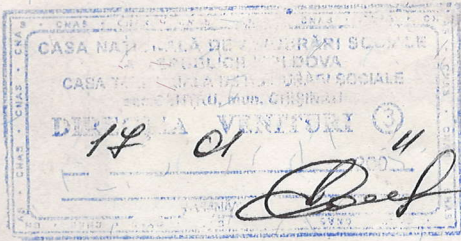 CNAS
CASA NAȚIONALĂ DE ASIGURĂRI SOCIALE
A REPUBLICII MOLDOVA
CASA TERITORIALĂ DE ASIGURĂRI SOCIALE
CENTRU, Mun. CHIȘINĂU
DIRECȚIA VENITURI 3
17 01 11
200